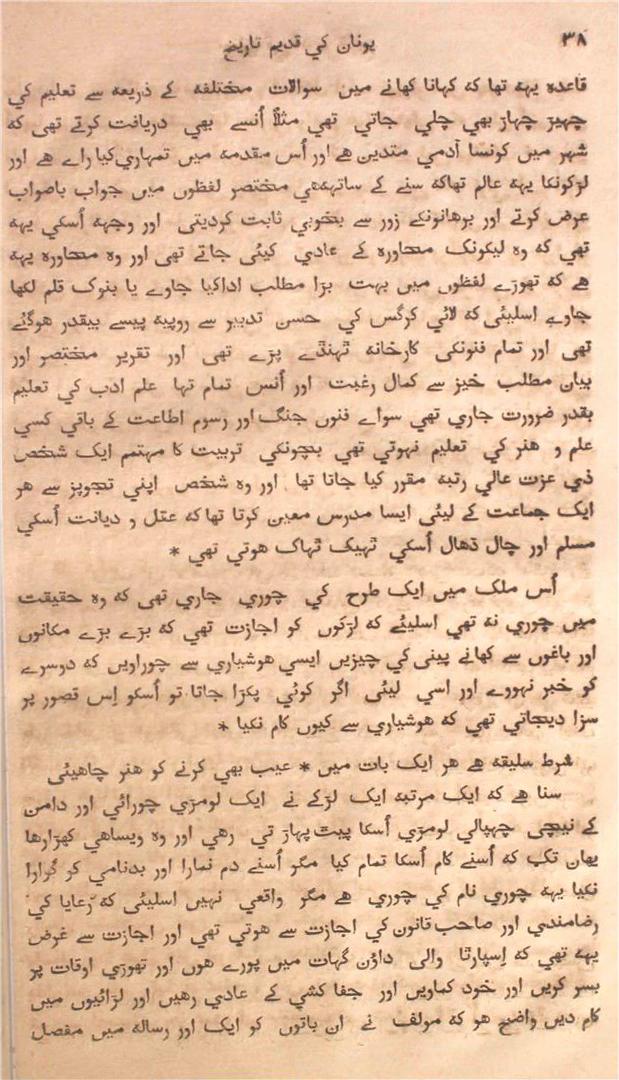 ۳۸
یونان کي قدیم تاریخ
قاعدہ یہہ تھا کہ کہانا کھانے میں سوالات مختلفہ کے ذریعہ سے تعلیم کي
چہیڑ چہاڑ بھی چلي جاتي تھي مثلاً اُنسے بھي دریافت کرتے تھی کہ
شہر میں کونسا آدمي متدین ھے اور اُس مقدمہ میں تمہاري کیا راے ھے اور
لڑکونکا یہہ عالم تھا کہ سنے کے ساتھہ ھي مختصر لفظوں میں جواب باصواب
عرض کرتے اور برھانونکے زور سے بخوبي ثابت کردیتی اور وجہہ اُسکي یہہ
تھي کہ وہ لیکونک محاورہ کے عادي کیئی جاتے تھی اور وہ محاورہ یہہ
ھے کہ تھوڑے لفظوں میں بہت بڑا مطلب ادا کیا جاوے یا بنوک قلم لکھا
جاوے اسلیئی کہ لائي کرگس کي حسن تدبیر سے روپیہ پیسے بیقدر ھوگئے
تھی اور تمام فنونکی کارخانہ ٹھنڈے پڑے تھی اور تقریر مختصر اور
بیان مطلب خیز سے کمال رغبت اور اُنس تمام تہا علم ادب کي تعلیم
بقدر ضرورت جاري تھي سواے فنون جنگ اور رسوم اطاعت کے باقي کسي
علم و ھنر کي تعلیم نہوتي تھي بچونکي تربیت کا مہتمم ایک شخص
ذي عزت عالي رتبہ مقرر کیا جاتا تھا اور وہ شخص اپني تجویز سے ھر
ایک جماعت کے لیئی ایسا مدرس معین کرتا تھا کہ عقل و دیانت اُسکي
مسلم اور چال ڈھال اُسکي ٹہیک ٹہاک ھوتي تھي *
اُس ملک میں ایک طرح کي چوري جاري تھي کہ وہ حقیقت
میں چوري نہ تھي اسلیئے کہ لڑکوں کو اجازت تھي کہ بڑے بڑے مکانوں
اور باغوں سے کھانے پینی کي چیزیں ایسي ھوشیاري سے چوراویں کہ دوسرے
کو خبر نہووے اور اسي لیئی اگر کوئي پکڑا جاتا تو اُسکو اِس قصور پر
سزا دیجاتي تھي کہ ھوشیاري سے کیوں کام نکیا *
شرط سلیقہ ھے ھر ایک بات میں * عیب بھي کرنے کو ھنر چاھیئی
سنا ھے کہ ایک مرتبہ ایک لڑکے نے ایک لومڑي چورائي اور دامن
کے نیچي چہپالي لومڑي اُسکا پیٹ پہاڑ تي رھي اور وہ ویساھي کھڑا رھا
یھاں تک کہ اُسنے کام اُسکا تمام کیا مگر اُسنے دم نمارا اور بدنامي کو گوارا
نکیا یہہ چوري نام کي چوري ھے مگر واقعي نہیں اسلیئی کہ رعایا کي
رضامندي اور صاحب قانون کي اجازت سے ھوتي تھي اور اجازت سے غرض
یہہ تھي کہ اِسپارٹا والی داؤں گہات میں پورے ھوں اور تھوڑي اوقات پر
بسر کریں اور خود کماویں اور جفا کشي کے عادي رھیں اور لڑائیوں میں
کام دیں واضح ھو کہ مولف نے ان باتوں کو ایک اور رسالہ میں مفصل